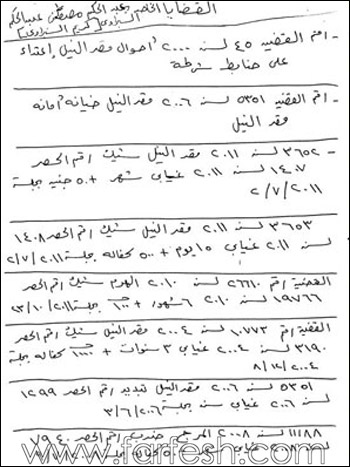 القضايا الخاصة بعبد الحكم مصطفى عبدالحكم
- رقم القضيه ٤٥ لسنه ٢٠٠٠ احوال قصر النيل إعتداء
على ضابط شرطة
- رقم القضية ٥٣٥١ لسنه ٢٠٠٦ قصر النيل خيانه أمانه
قصر النيل
- ٣٦٥٢ لسنه ٢٠١١ قصر النيل شيك رقم الحصر
١٤٠٧ لسنه ٢٠١١ غيابي شهر + ٥٠ جنيه جلسة
٢/٧/٢٠١١
٣٦٥٣ لسنه ٢٠١١ قصر النيل شيك رقم الحصر ١٤٠٨
لسنه ٢٠١١ غيابي ١٥ يوم + ٥٠٠ كفاله جلسة ٢/٧/٢٠١١
القضية رقم ٢٦٦١٠ لسنه ٢٠١٠ الهرم شيك رقم الحصر
١٩٧٦٦ لسنه ٢٠١٠ ٦ شهور + ١٠٠٠ جلسة ٣/١٠/٢٠١١
القضية رقم ١٠٧٧٣ لسنه ٢٠٠٤ قصر النيل شيك رقم الحصر
٣١٩٠ لسنه ٢٠٠٤ غيابي ٣ سنوات + ١٠٠٠ كفاله جلسة
٨/١٢/٢٠٠٤
٥٣٥١ لسنه ٢٠٠٦ قصر النيل تبديد رقم الحصر ١٢٩٩
لسنه ٢٠٠٦ غيابي سنه جلسة ٣/٦/٢٠٠٦
١١١٨٨ لسنه ٢٠٠٨ المرج ضرب رقم الحصر ٧٩٤٠
www.farfesh.com